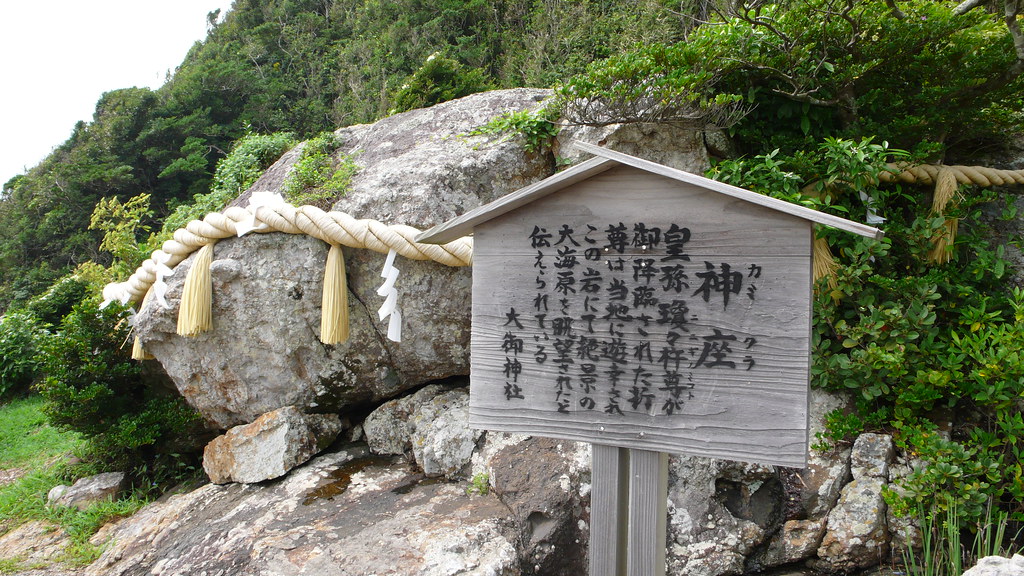 神座
カミクラ
皇孫瓊々杵尊が
御降臨された折
尊は当地に遊幸され
この岩にて絶景の
大海原を眺望されたと
伝えられている
大御神社